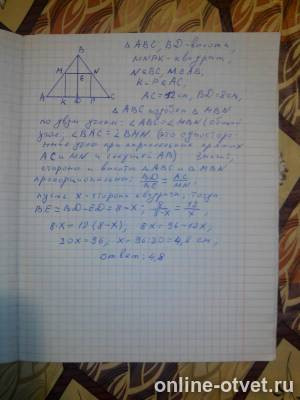 B
M N
E
A K D P C
△ABC, BD-высота,
MNPK-квадрат,
N∈BC, M∈AB,
K-P∈AC,
AC=12см, BD=8см,
△ABC подобен △MBN
по двум углам: ∠ABC=∠MBN (общий
угол, ∠BAC=∠BMN (это односторон-
ние углы при прямых
AC и MN и секущей AB) Значит,
стороны и высоты △ABC и △MBN
пропорциональны: BD/BE = AC/MN;
пусть x-сторона квадрата, тогда
BE=BD-ED=8-x; 8/8-x = 12/x;
8x=12·(8-x) 8x=96-12x,
20x=96; x=96:20=4,8 см,
ответ: 4,8
online-otvet.ru